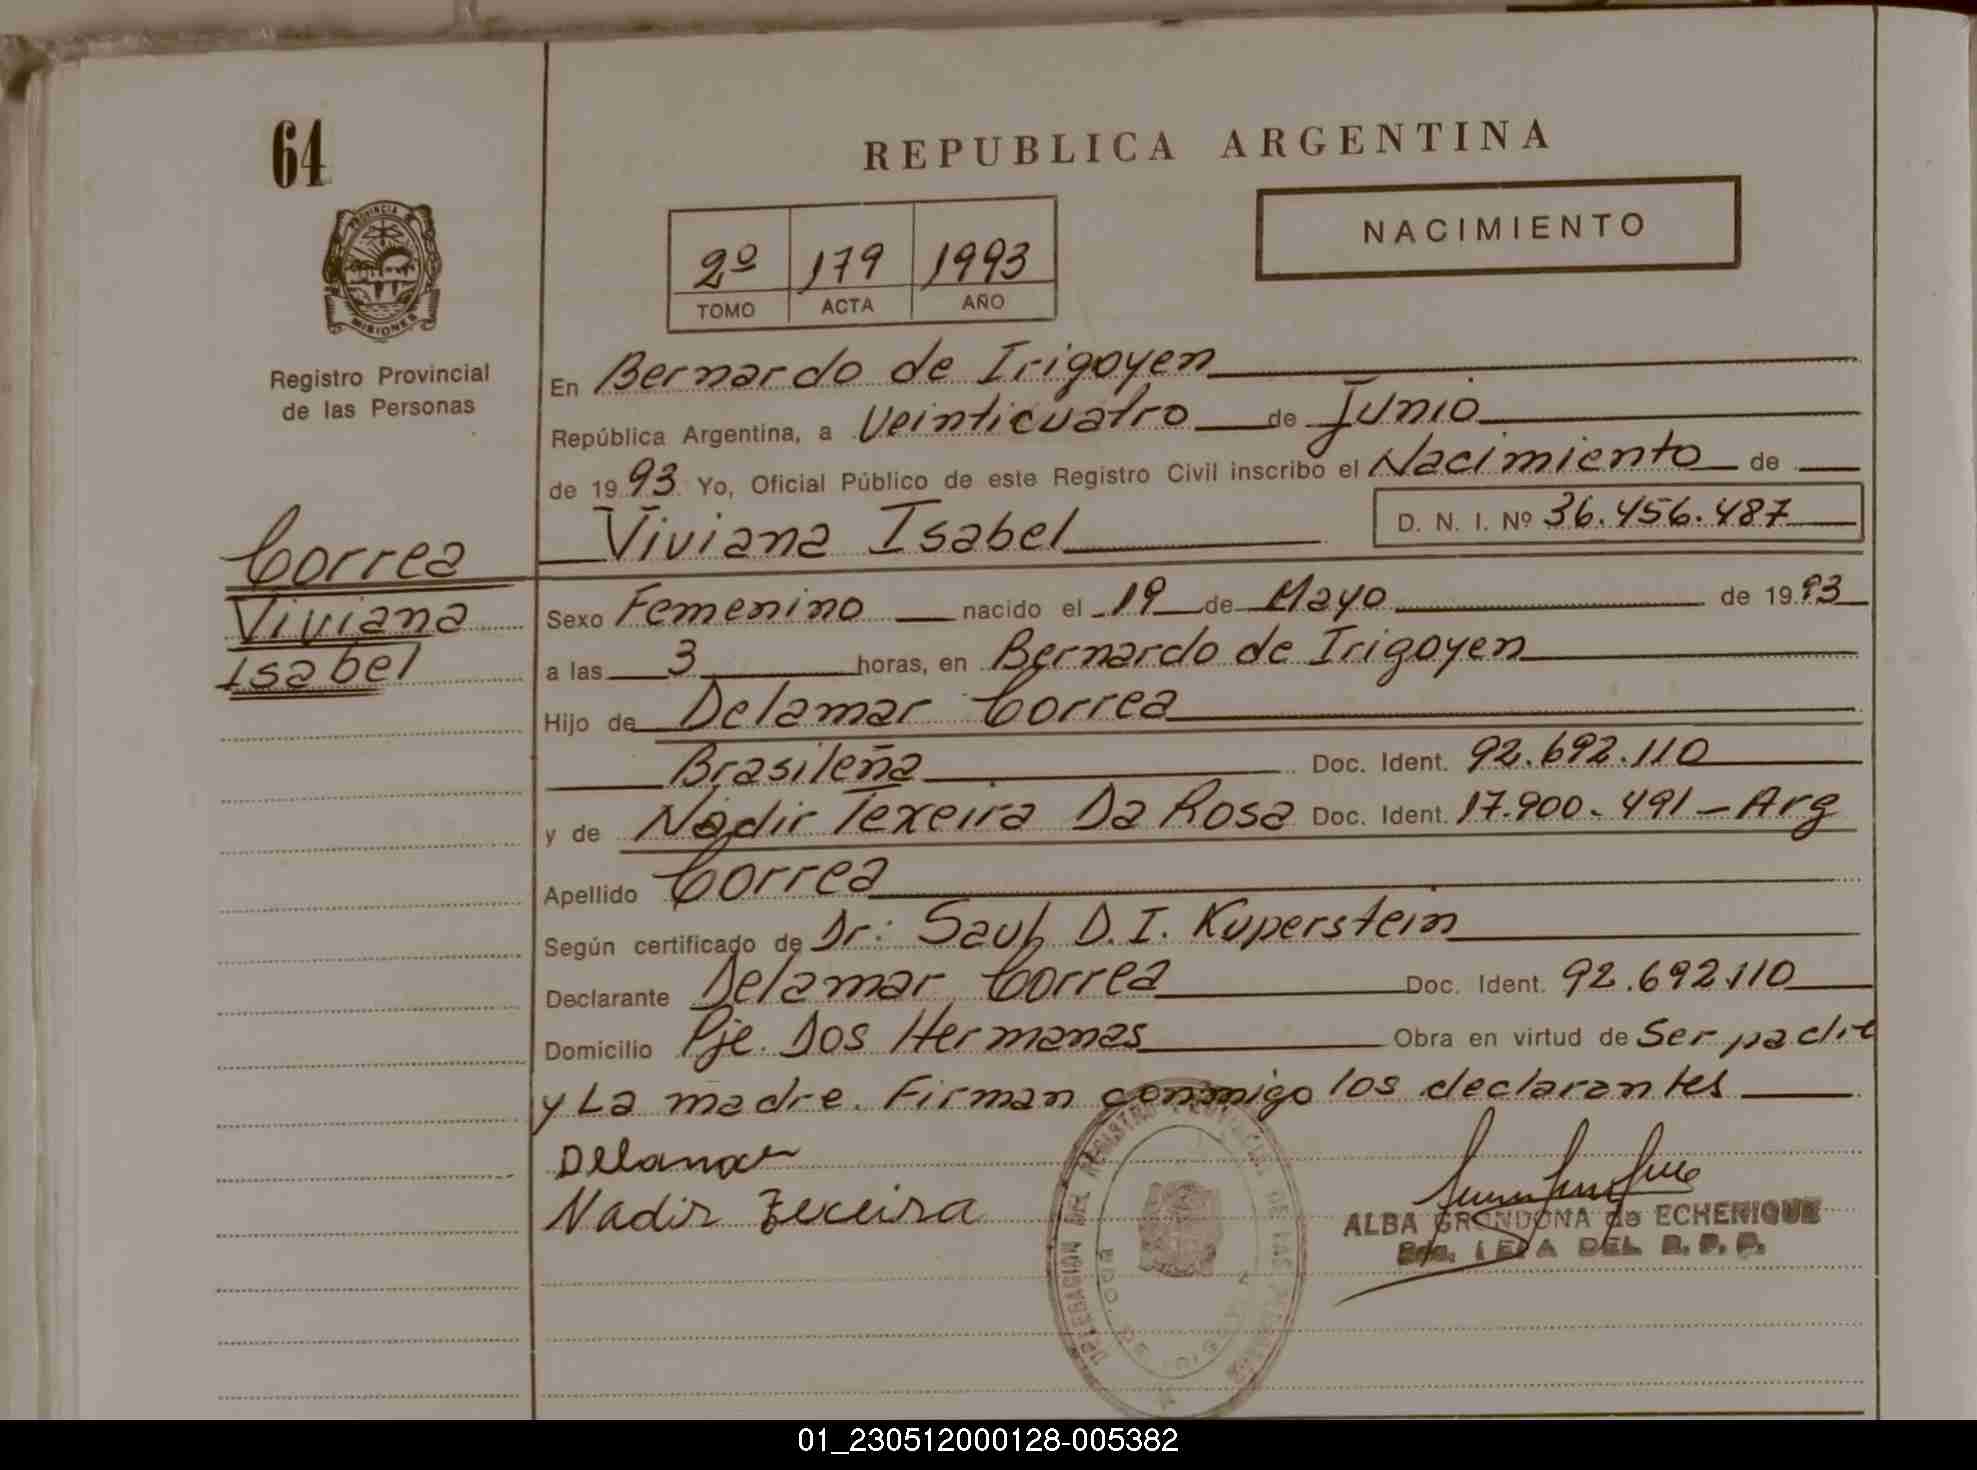 64
REPUBLICA ARGENTINA
PROVINCIA DE
MISIONES
Registro Provincial
de las Personas
2º 179 1993
TOMO ACTA AÑO
NACIMIENTO
En Bernardo de Irigoyen
República Argentina, a Veinticuatro de Junio
de 1993 Yo, Oficial Público de este Registro Civil inscribo el Nacimiento de
Viviana Isabel D. N. I. Nº 36.456.487
Correa
Viviana
Isabel
Sexo Femenino nacido el 19 de Mayo de 1993
a las 3 horas, en Bernardo de Irigoyen
Hijo de Delamar Correa
Brasileña Doc. Ident. 92.692.110
y de Nadir Texeira Da Rosa Doc. Ident. 17.900.491 - Arg
Apellido Correa
Según certificado de Dr: Saub D. I. Kuperstein
Declarante Delamar Correa Doc. Ident. 92.692.110
Domicilio Pje. Dos Hermanas Obra en virtud de Ser padre
y La madre. Firman conmigo los declarantes
Delamar
Nadir Texeira
ALBA GRONDONA de ECHENIQUE
DEL R. P. P.
DELEGACION DEL REGISTRO PROVINCIAL DE LAS PERSONAS
01_230512000128-005382